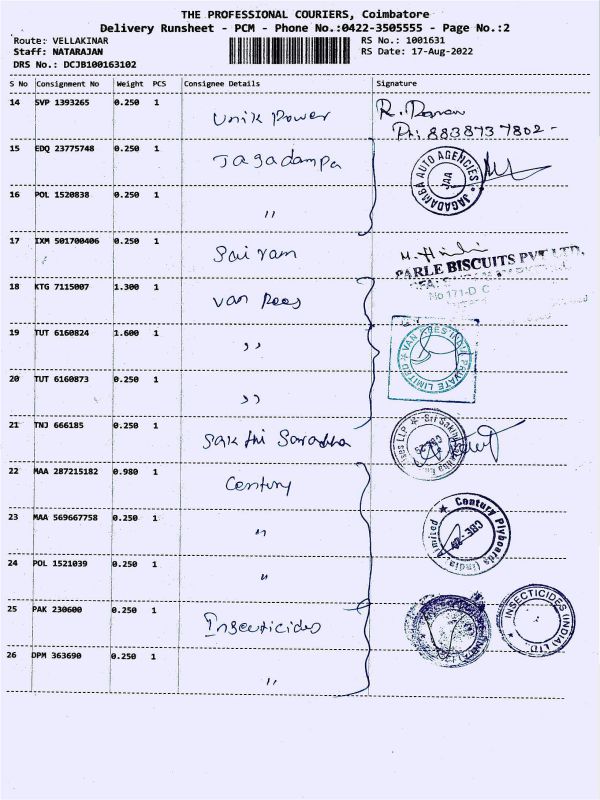 THE PROFESSIONAL COURIERS, Coimbatore
Delivery Runsheet - PCM - Phone No.:0422-3505555 - Page No.:2
Route: VELLAKINAR RS No.: 1001631
Staff: NATARAJAN RS Date: 17-Aug-2022
DRS No.: DCJB100163102
S No Consignment No Weight PCS Consignee Details Signature
14 SVP 1393265 0.250 1 Unik Power R.
Ph: 8838737802-
15 EDQ 23775748 0.250 1 Jagadampa JAGADAMBA AUTO AGENCIES JAA
16 POL 1520838 0.250 1 "
17 IXM 501700406 0.250 1 Sai ram
PARLE BISCUITS PVT LTD.
No 171-D C
18 KTG 7115007 1.300 1 Van Rees
19 TUT 6160824 1.600 1 " VAN REES INDIA PRIVATE LIMITED
20 TUT 6160873 0.250 1 "
21 TNJ 666185 0.250 1 Sakthi Saradha
22 MAA 287215182 0.980 1 Century
23 MAA 569667758 0.250 1 " Century Plyboards (India) Limited CBE
24 POL 1521039 0.250 1 "
25 PAK 230600 0.250 1 Insecticides INSECTICIDES (INDIA) LTD.
26 DPM 363690 0.250 1 "